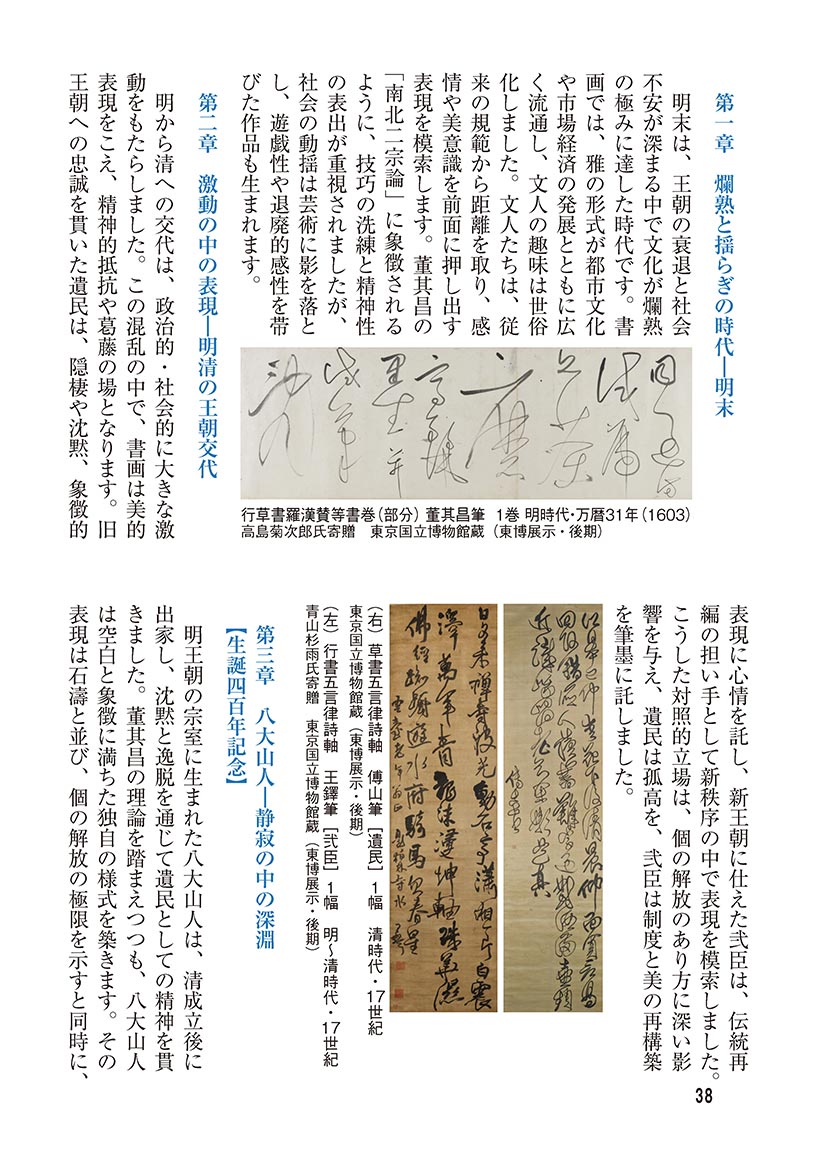 第一章　爛熟と揺らぎの時代―明末
　明末は、王朝の衰退と社会
不安が深まる中で文化が爛熟
の極みに達した時代です。書
画では、雅の形式が都市文化
や市場経済の発展とともに広
く流通し、文人の趣味は世俗
化しました。文人たちは、従
来の規範から距離を取り、感
情や美意識を前面に押し出す
表現を模索します。董其昌の
「南北二宗論」に象徴される
ように、技巧の洗練と精神性
の表出が重視されましたが、
社会の動揺は芸術に影を落と
し、遊戯性や退廃的感性を帯
びた作品も生まれます。
行草書羅漢賛等書巻（部分） 董其昌筆　1巻 明時代・万暦31年（1603）
高島菊次郎氏寄贈　東京国立博物館蔵（東博展示・後期）
第二章　激動の中の表現―明清の王朝交代
　明から清への交代は、政治的・社会的に大きな激
動をもたらしました。この混乱の中で、書画は美的
表現をこえ、精神的抵抗や葛藤の場となります。旧
王朝への忠誠を貫いた遺民は、隠棲や沈黙、象徴的
表現に心情を託し、新王朝に仕えた弐臣は、伝統再
編の担い手として新秩序の中で表現を模索しました。
こうした対照的立場は、個の解放のあり方に深い影
響を与え、遺民は孤高を、弐臣は制度と美の再構築
を筆墨に託しました。
（右）草書五言律詩軸　傅山筆［遺民］1幅　清時代・17世紀
東京国立博物館蔵（東博展示・後期）
（左）行書五言律詩軸　王鐸筆［弐臣］1幅　明～清時代・17世紀
青山杉雨氏寄贈　東京国立博物館蔵（東博展示・後期）
第三章　八大山人―静寂の中の深淵
【生誕四百年記念】
　明王朝の宗室に生まれた八大山人は、清成立後に
出家し、沈黙と逸脱を通じて遺民としての精神を貫
きました。董其昌の理論を踏まえつつも、八大山人
は空白と象徴に満ちた独自の様式を築きます。その
表現は石濤と並び、個の解放の極限を示すと同時に、
38